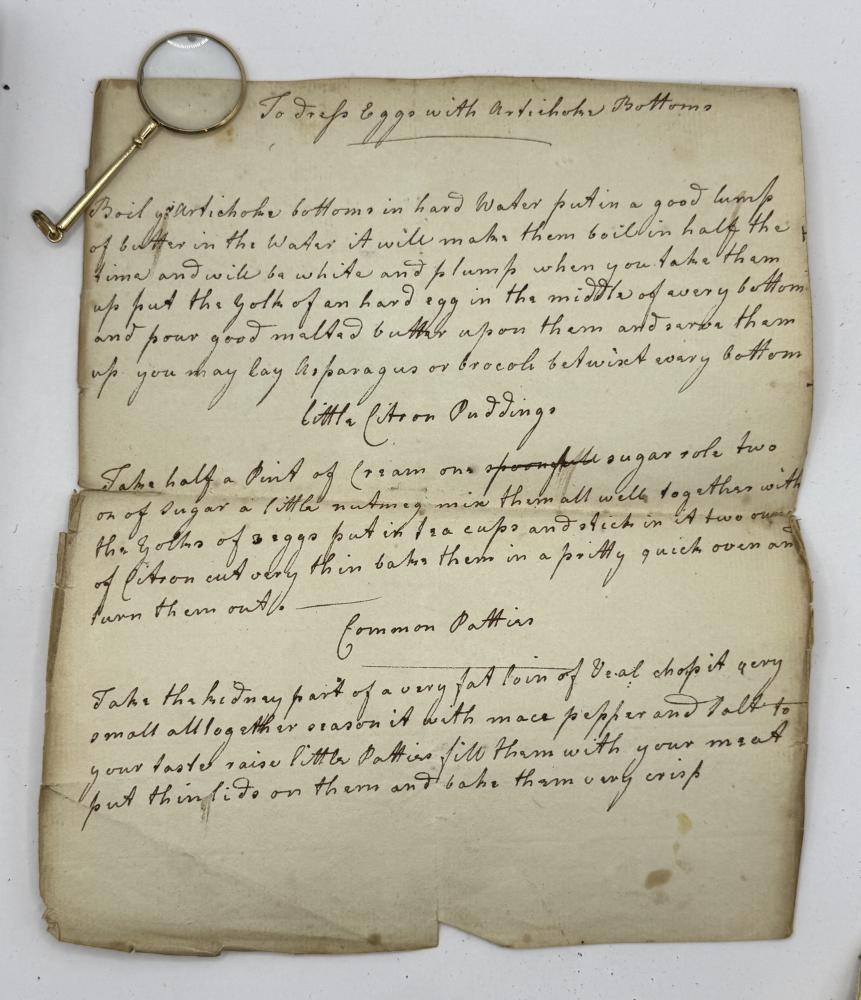 To dress Eggs with Artichoke Bottoms
Boil ye Artichoke bottoms in hard Water put in a good lump
of butter in the Water it will make them boil in half the
time and will be white and plump when you take them
up put the Yolk of an hard egg in the middle of every bottom
and pour good malted butter upon them and serve them
up you may lay Asparagus or brocoli betwixt every bottom
little Citron Puddings
Take half a Pint of Cream one spoonfull sugar role two
oz of Sugar a little nutmeg mix them all well together with
the Yolks of 3 eggs put in tea cups and stick in it two
of Citron cut very thin bake them in a pritty quick oven and
turn them out
Common Patties
Take the kedney part of a very fat loin of Veal chop it very
small all together season it with mace pepper and Salt to
your taste raise little Patties fill them with your meat
put thin lids on them and bake them very crisp